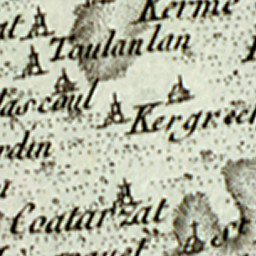 Kerme
at
Toulanlan
lascoul
Kergrech
rdin
Coatarzat
st